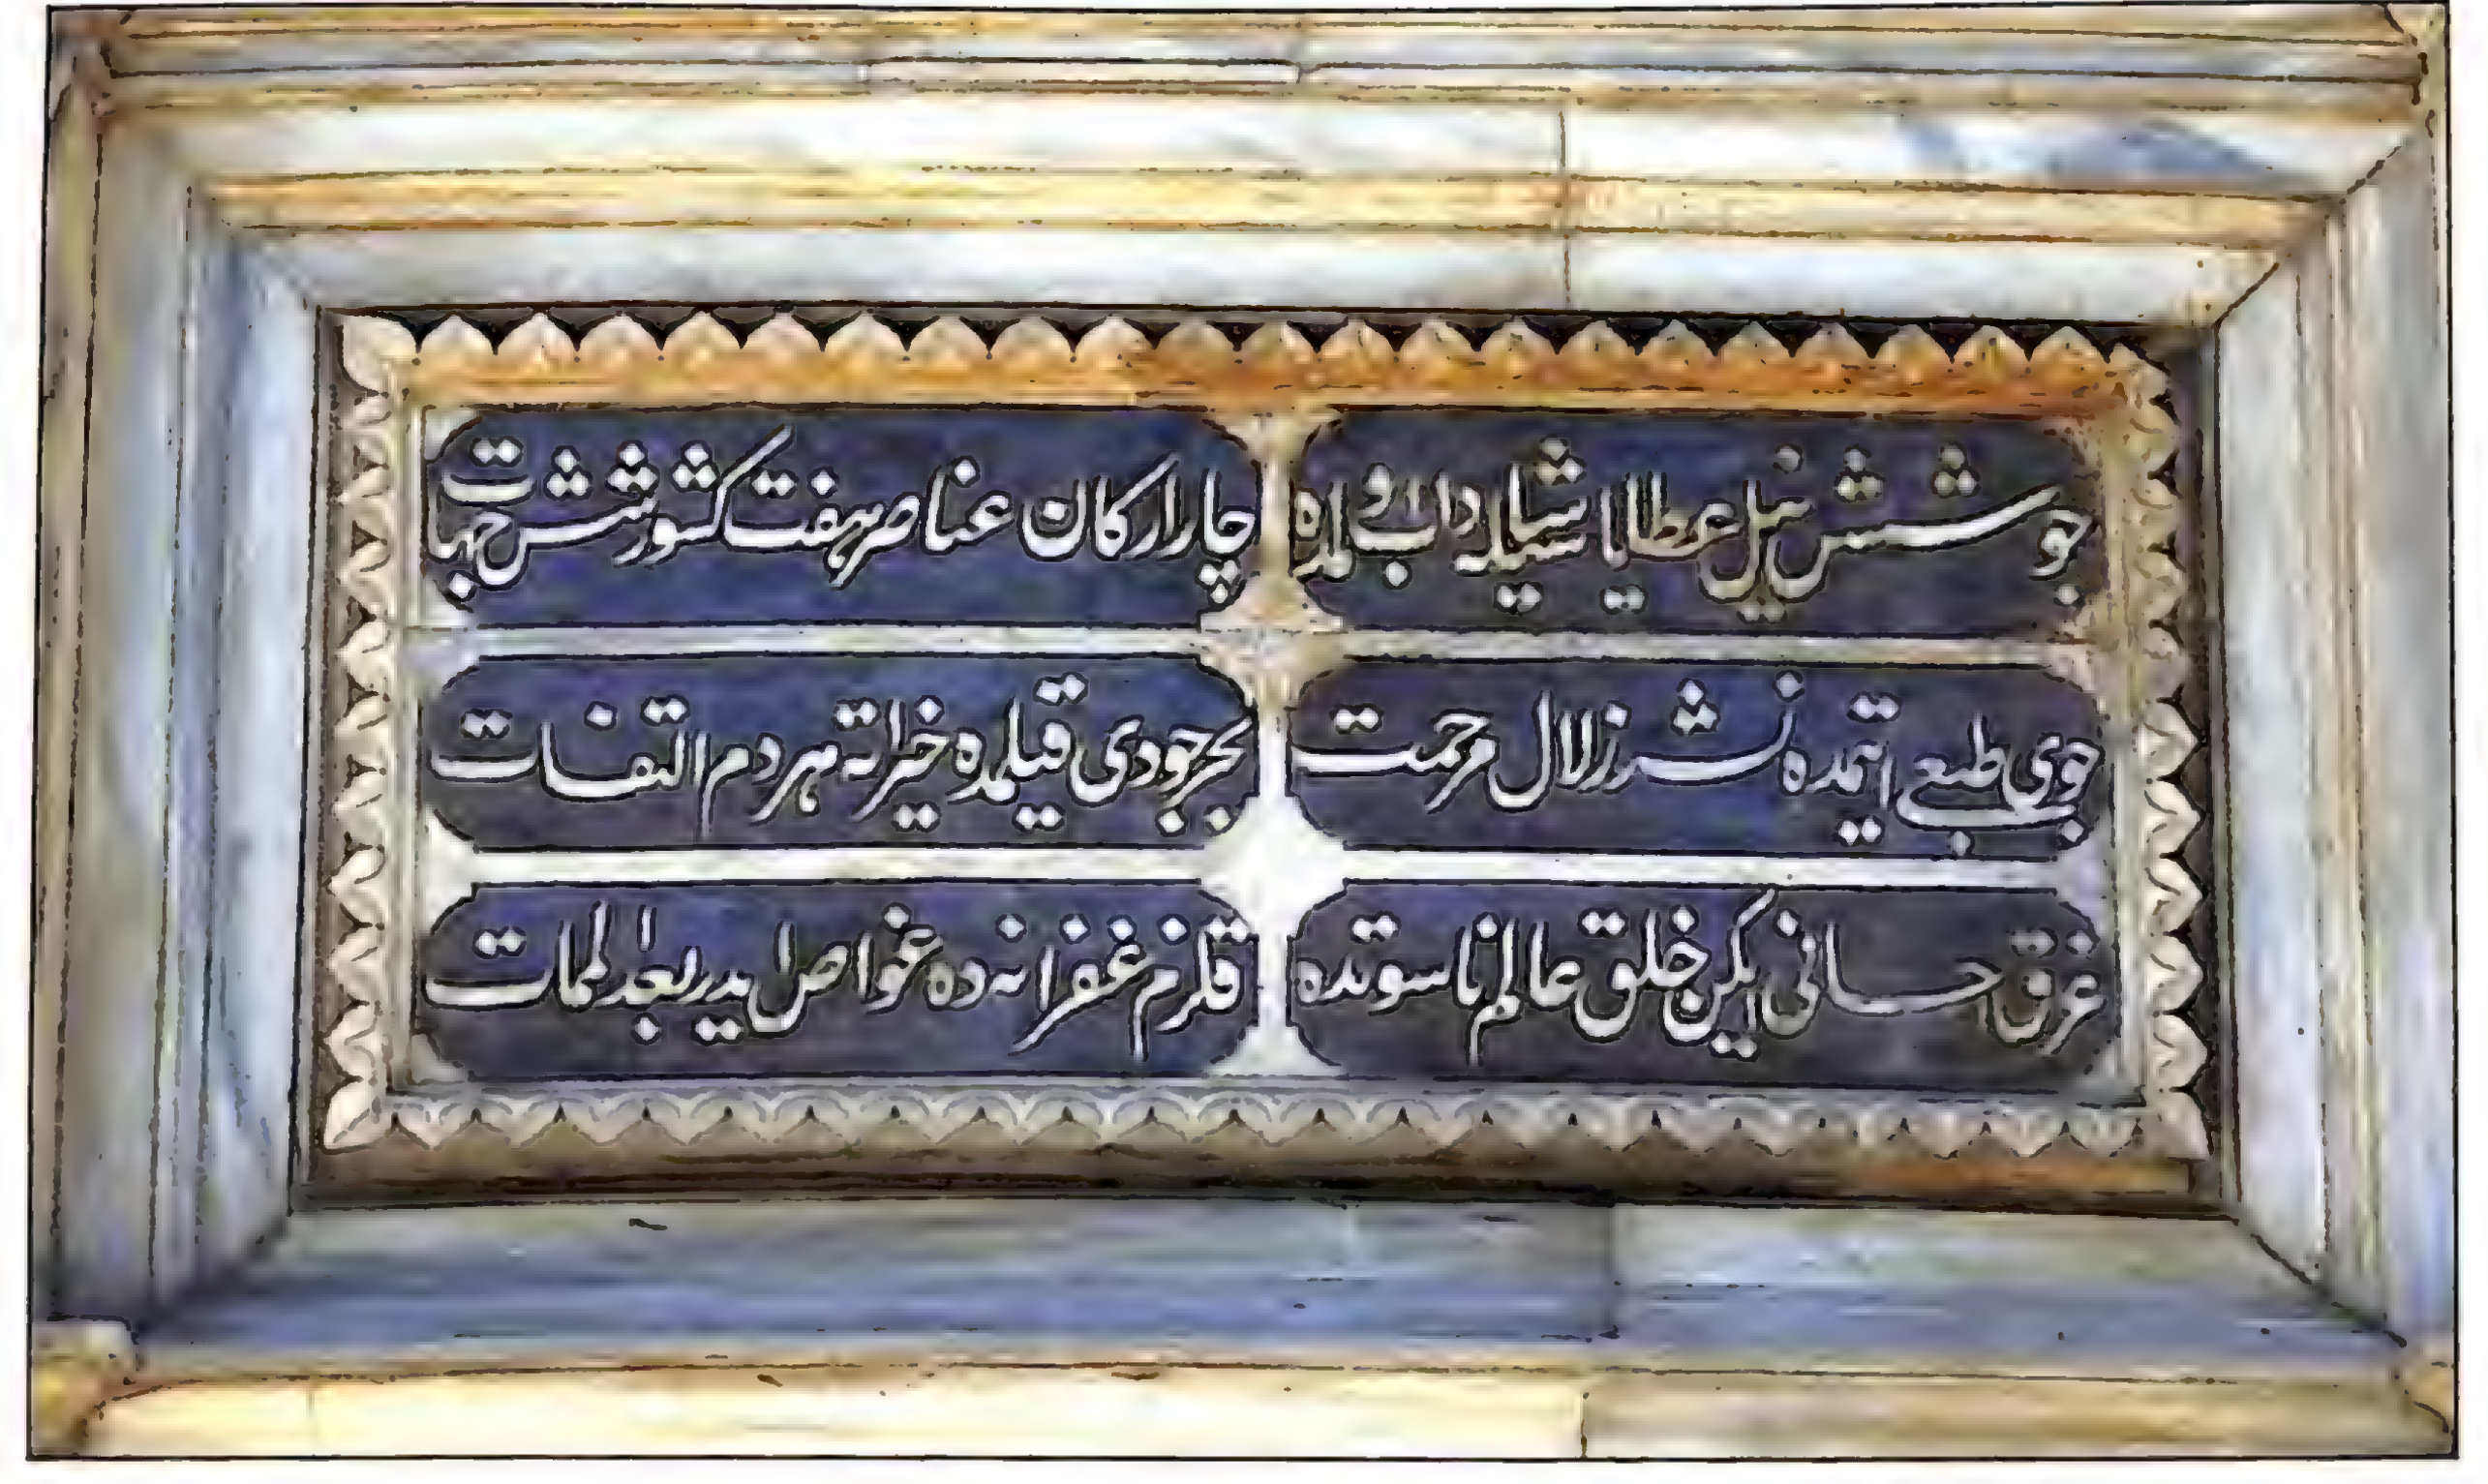 جوشش نیل عطایاسیله شاداب اولمده
چار ارکان عناصر هفت کشور شش جهات
جوی طبعی ایتمده نشر زلال مرحمت
بحر جودی قیلمده خیراته هر دم التفات
غرق احسانی ایکن خلق عالم ناسوتده
قلزم غفرانه ده غواص ایدر بعد الممات